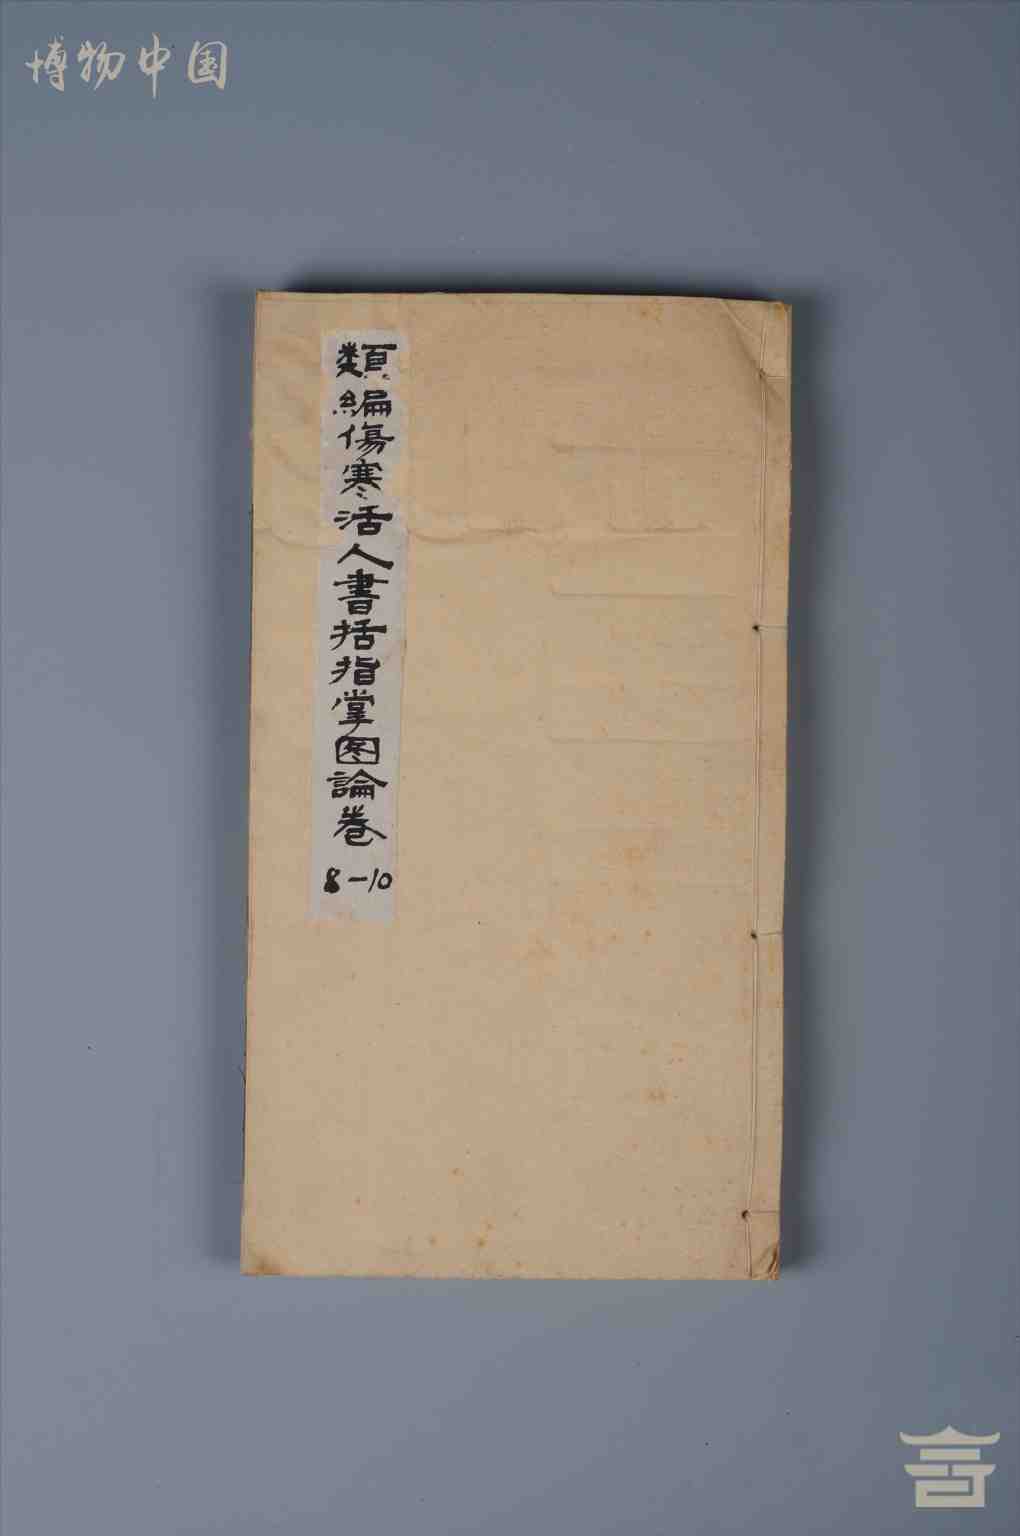 博物中国
類編傷寒活人書括指掌图論卷
8-10